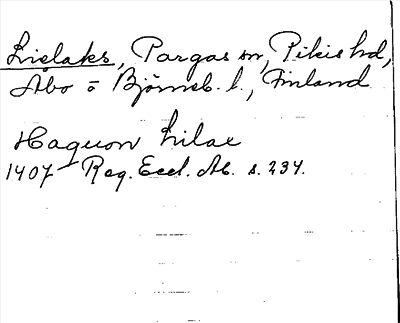 Lielaks, Pargas sn, Pikis hd,
Åbo o Björneb. l., Finland
Haquon Lilax
1407 Reg. Eccl. Ab. s. 234.